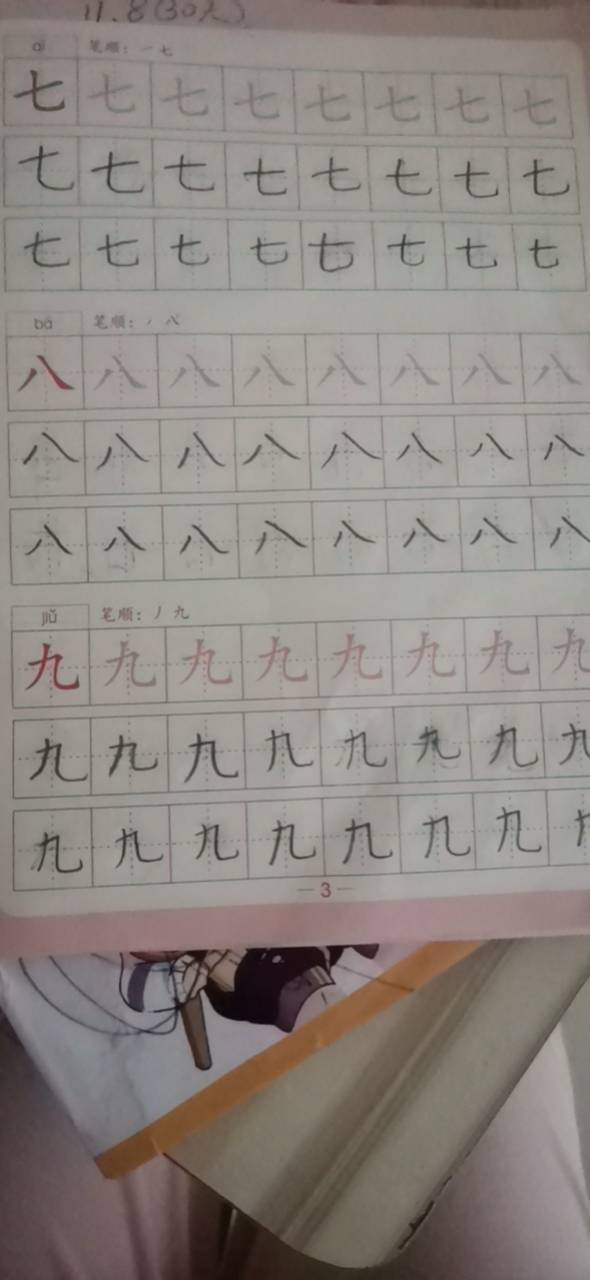 11.8(30人)
qī 笔顺：一 七
七 七 七 七 七 七 七 七
七 七 七 七 七 七 七 七
七 七 七 七 七 七 七 七
bā 笔顺：丿 八
八 八 八 八 八 八 八 八
八 八 八 八 八 八 八 八
八 八 八 八 八 八 八 八
jiǔ 笔顺：丿 九
九 九 九 九 九 九 九 九
九 九 九 九 九 九 九 九
九 九 九 九 九 九 九
— 3 —